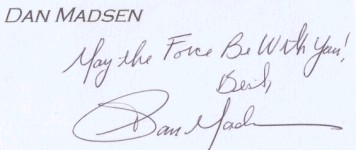 DAN MADSEN
May the Force Be With You!
Best,
Dan Madsen